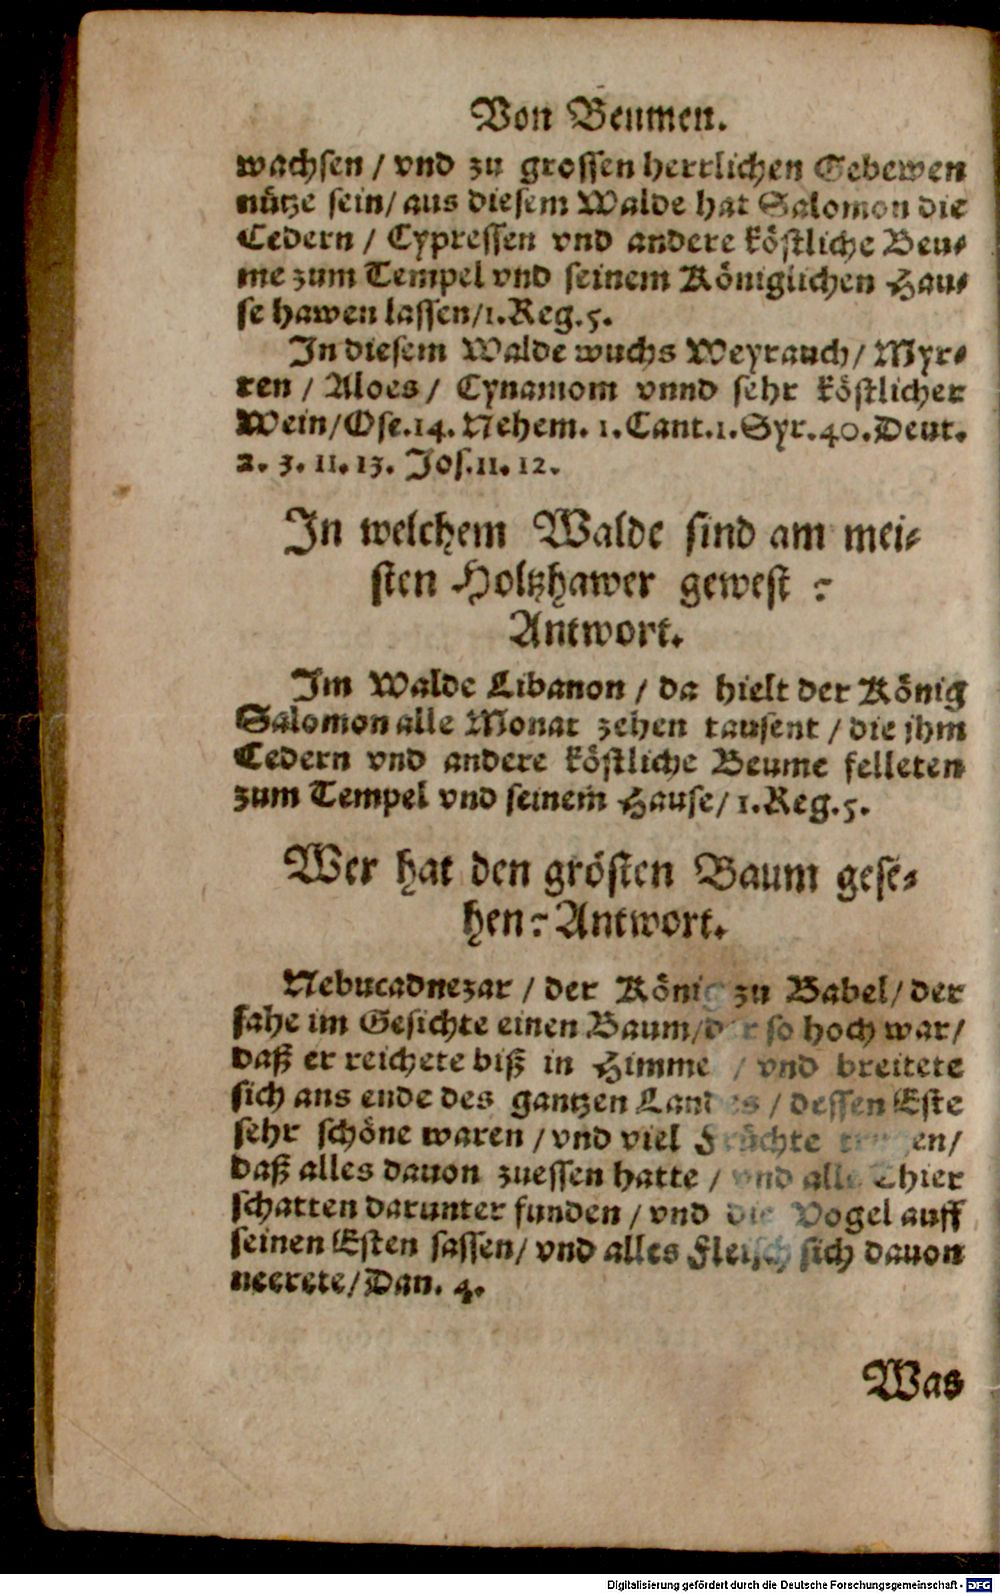 Von Beumen.
wachsen / vnd zu grossen herrlichen Gebewen
nütze sein / aus diesem Walde hat Salomon die
Cedern / Cypressen vnd andere köstliche Beu-
me zum Tempel vnd seinem Königlichen Hau-
se hawen lassen / 1. Reg. 5.
In diesem Walde wuchs Weyrauch / Myr-
ren / Aloes / Cynamom vnnd sehr köstlicher
Wein / Ose. 14. Nehem. 1. Cant. 1. Syr. 40. Deut.
2. 3. 11. 13. Jos. 11. 12.
In welchem Walde sind am mei-
sten Holtzhawer gewest ?
Antwort.
Im Walde Libanon / da hielt der König
Salomon alle Monat zehen tausent / die jhm
Cedern vnd andere köstliche Beume felleten
zum Tempel vnd seinem Hause / 1. Reg. 5.
Wer hat den grösten Baum gese-
hen? Antwort.
Nebucadnezar / der König zu Babel / der
sahe im Gesichte einen Baum / der so hoch war /
daß er reichete biß in Himmel / vnd breitete
sich ans ende des gantzen Landes / dessen Este
sehr schöne waren / vnd viel Früchte trugen /
daß alles dauon zuessen hatte / vnd alle Thier
schatten darunter funden / vnd die Vogel auff
seinen Esten sassen / vnd alles Fleisch sich dauon
neerete / Dan. 4.
Was
Digitalisierung gefördert durch die Deutsche Forschungsgemeinschaft - DFG